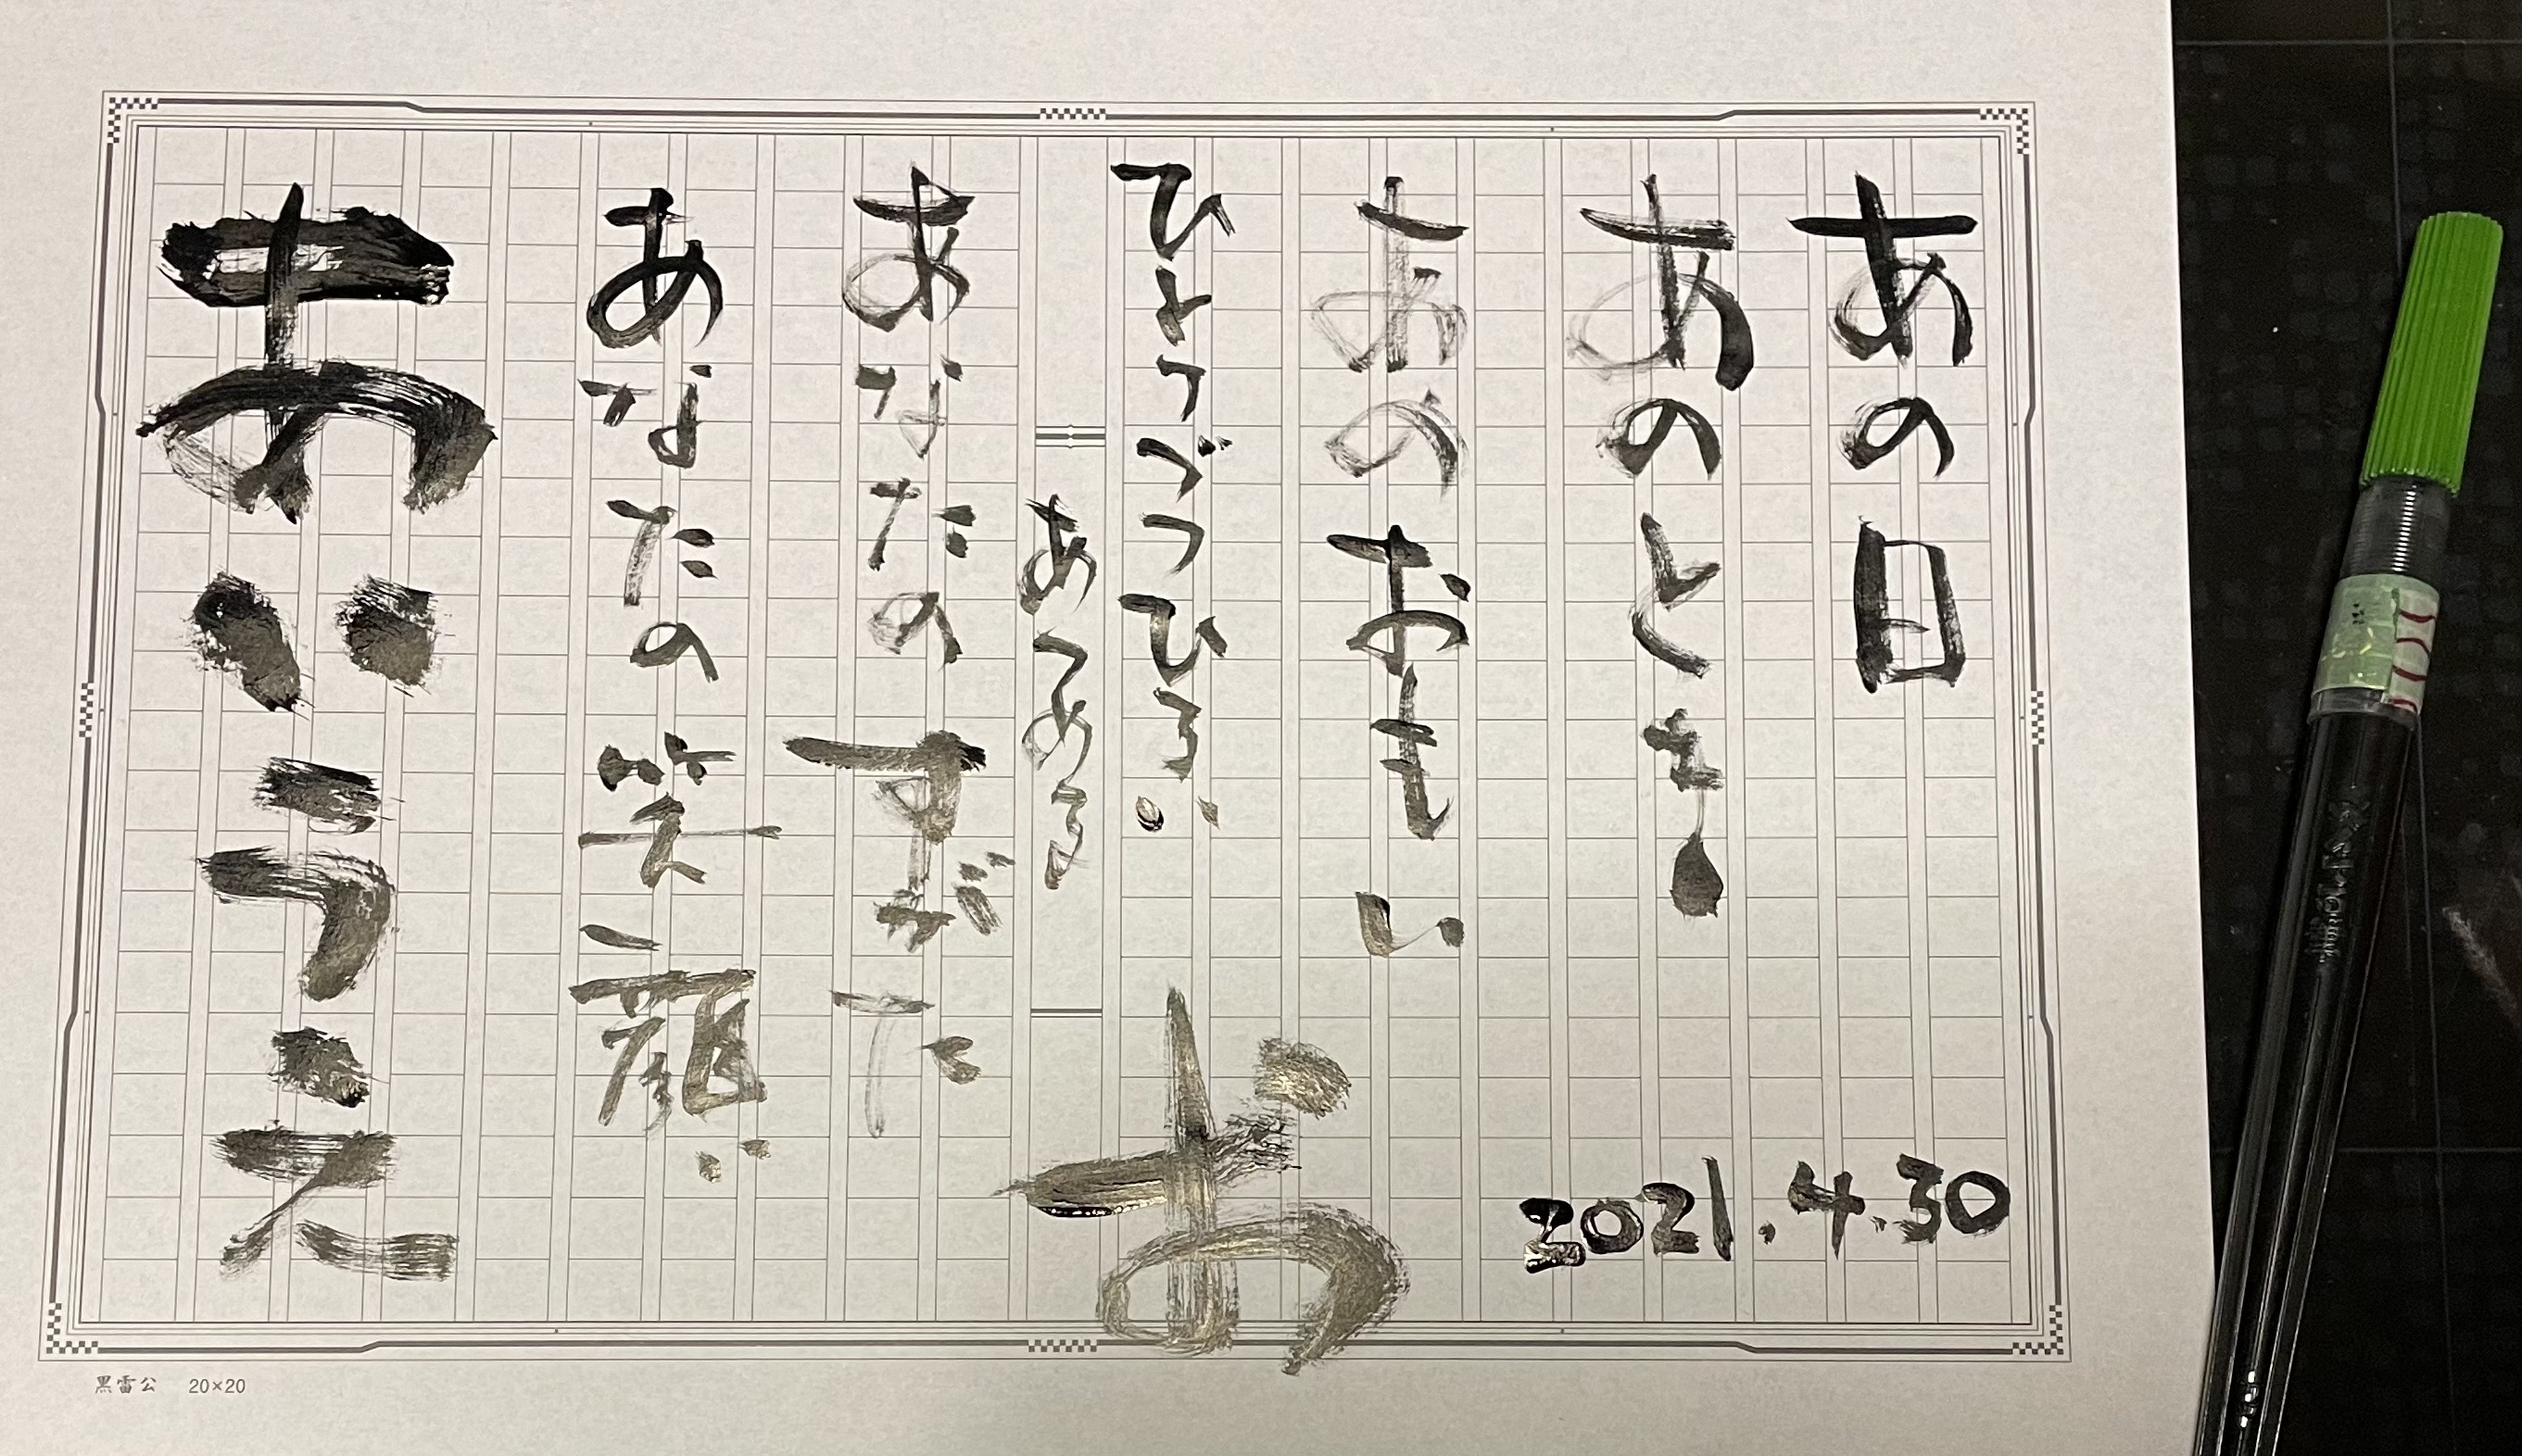 あの日
あのとき
あの おもい
ひとつづつひろい
あつめる
あなたの すがた
あなたの笑顔
あいうえ
お
2021.4.30
黒雷公 20×20